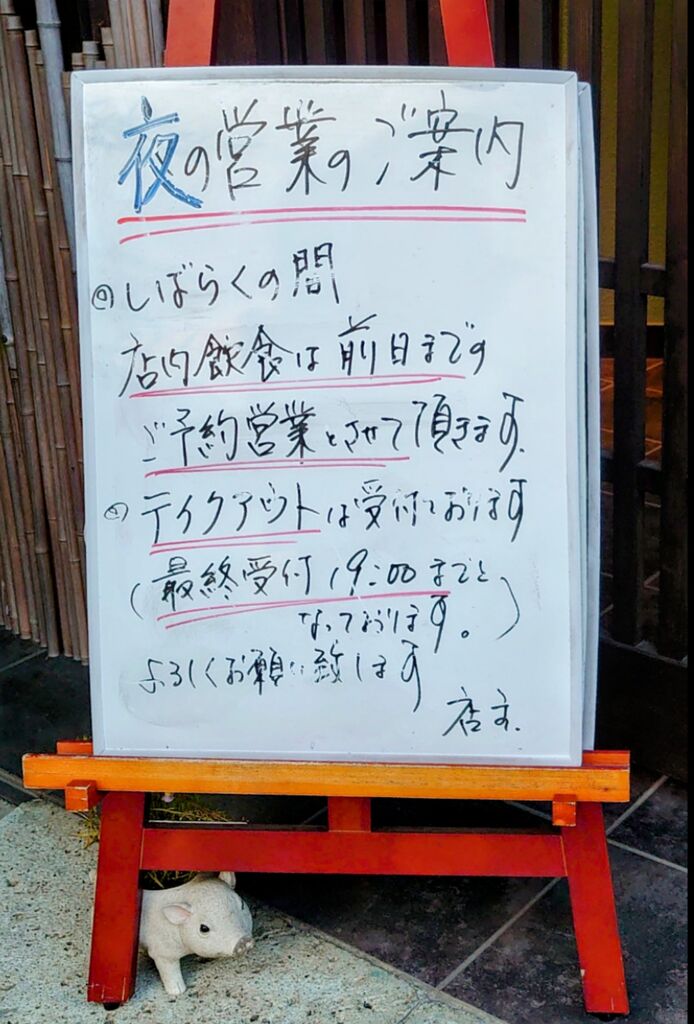 夜の営業のご案内
◎しばらくの間
店内飲食は前日までの
ご予約営業とさせて頂きます。
◎テイクアウトは受付ております
(最終受付19:00までと
なっております。)
よろしくお願い致します
店主.